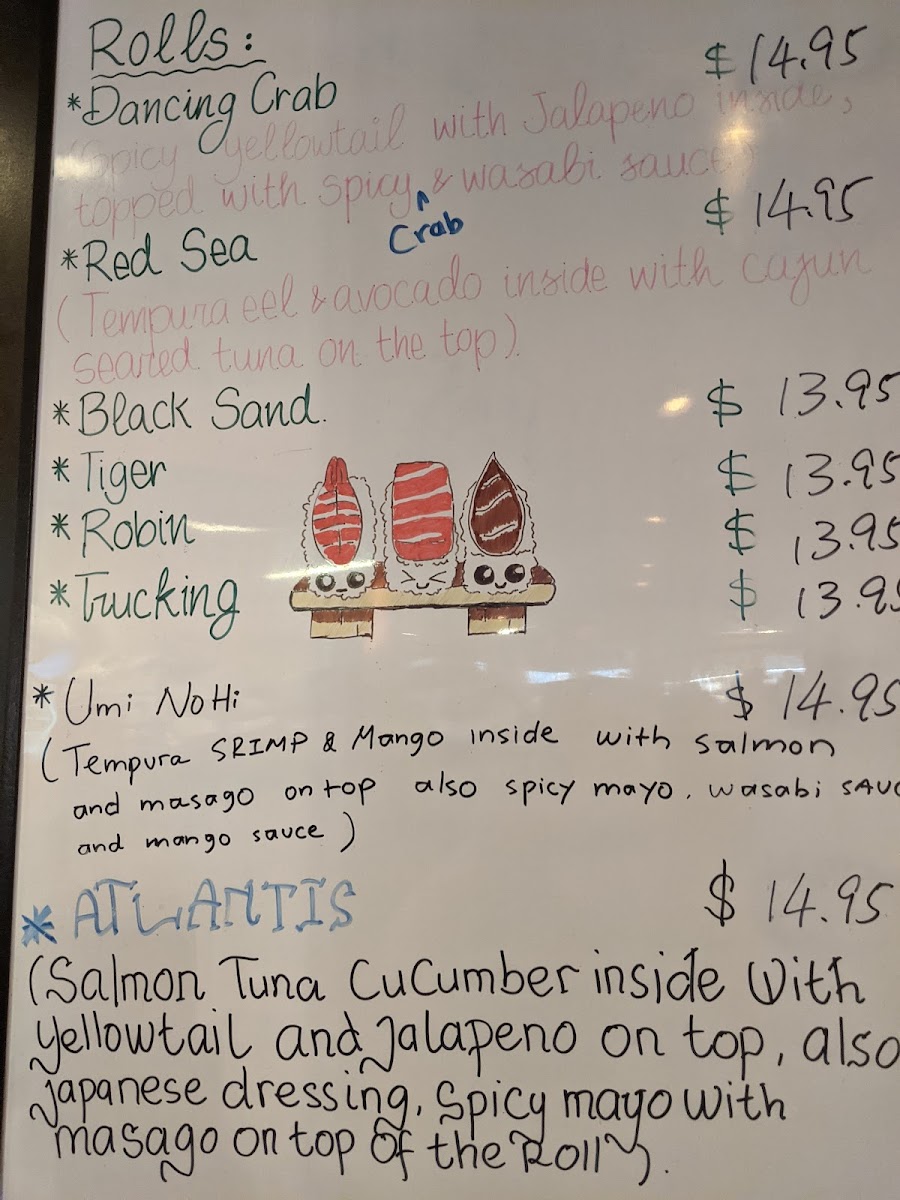 Rolls:
*Dancing Crab $14.95
(Spicy yellowtail with Jalapeno inside,
topped with spicy ^ & wasabi sauce)
Crab
*Red Sea $14.95
(Tempura eel & avocado inside with cajun
seared tuna on the top)
*Black Sand. $13.95
*Tiger $13.95
*Robin $13.95
*Trucking $13.95
*Umi NoHi $14.95
(Tempura SRIMP & Mango inside with salmon
and masago on top also spicy mayo, wasabi SAUC
and mango sauce)
*ATLANTIS $14.95
(Salmon Tuna CuCumber inside With
yellowtail and Jalapeno on top, also
Japanese dressing, Spicy mayo with
masago on top of the Roll).